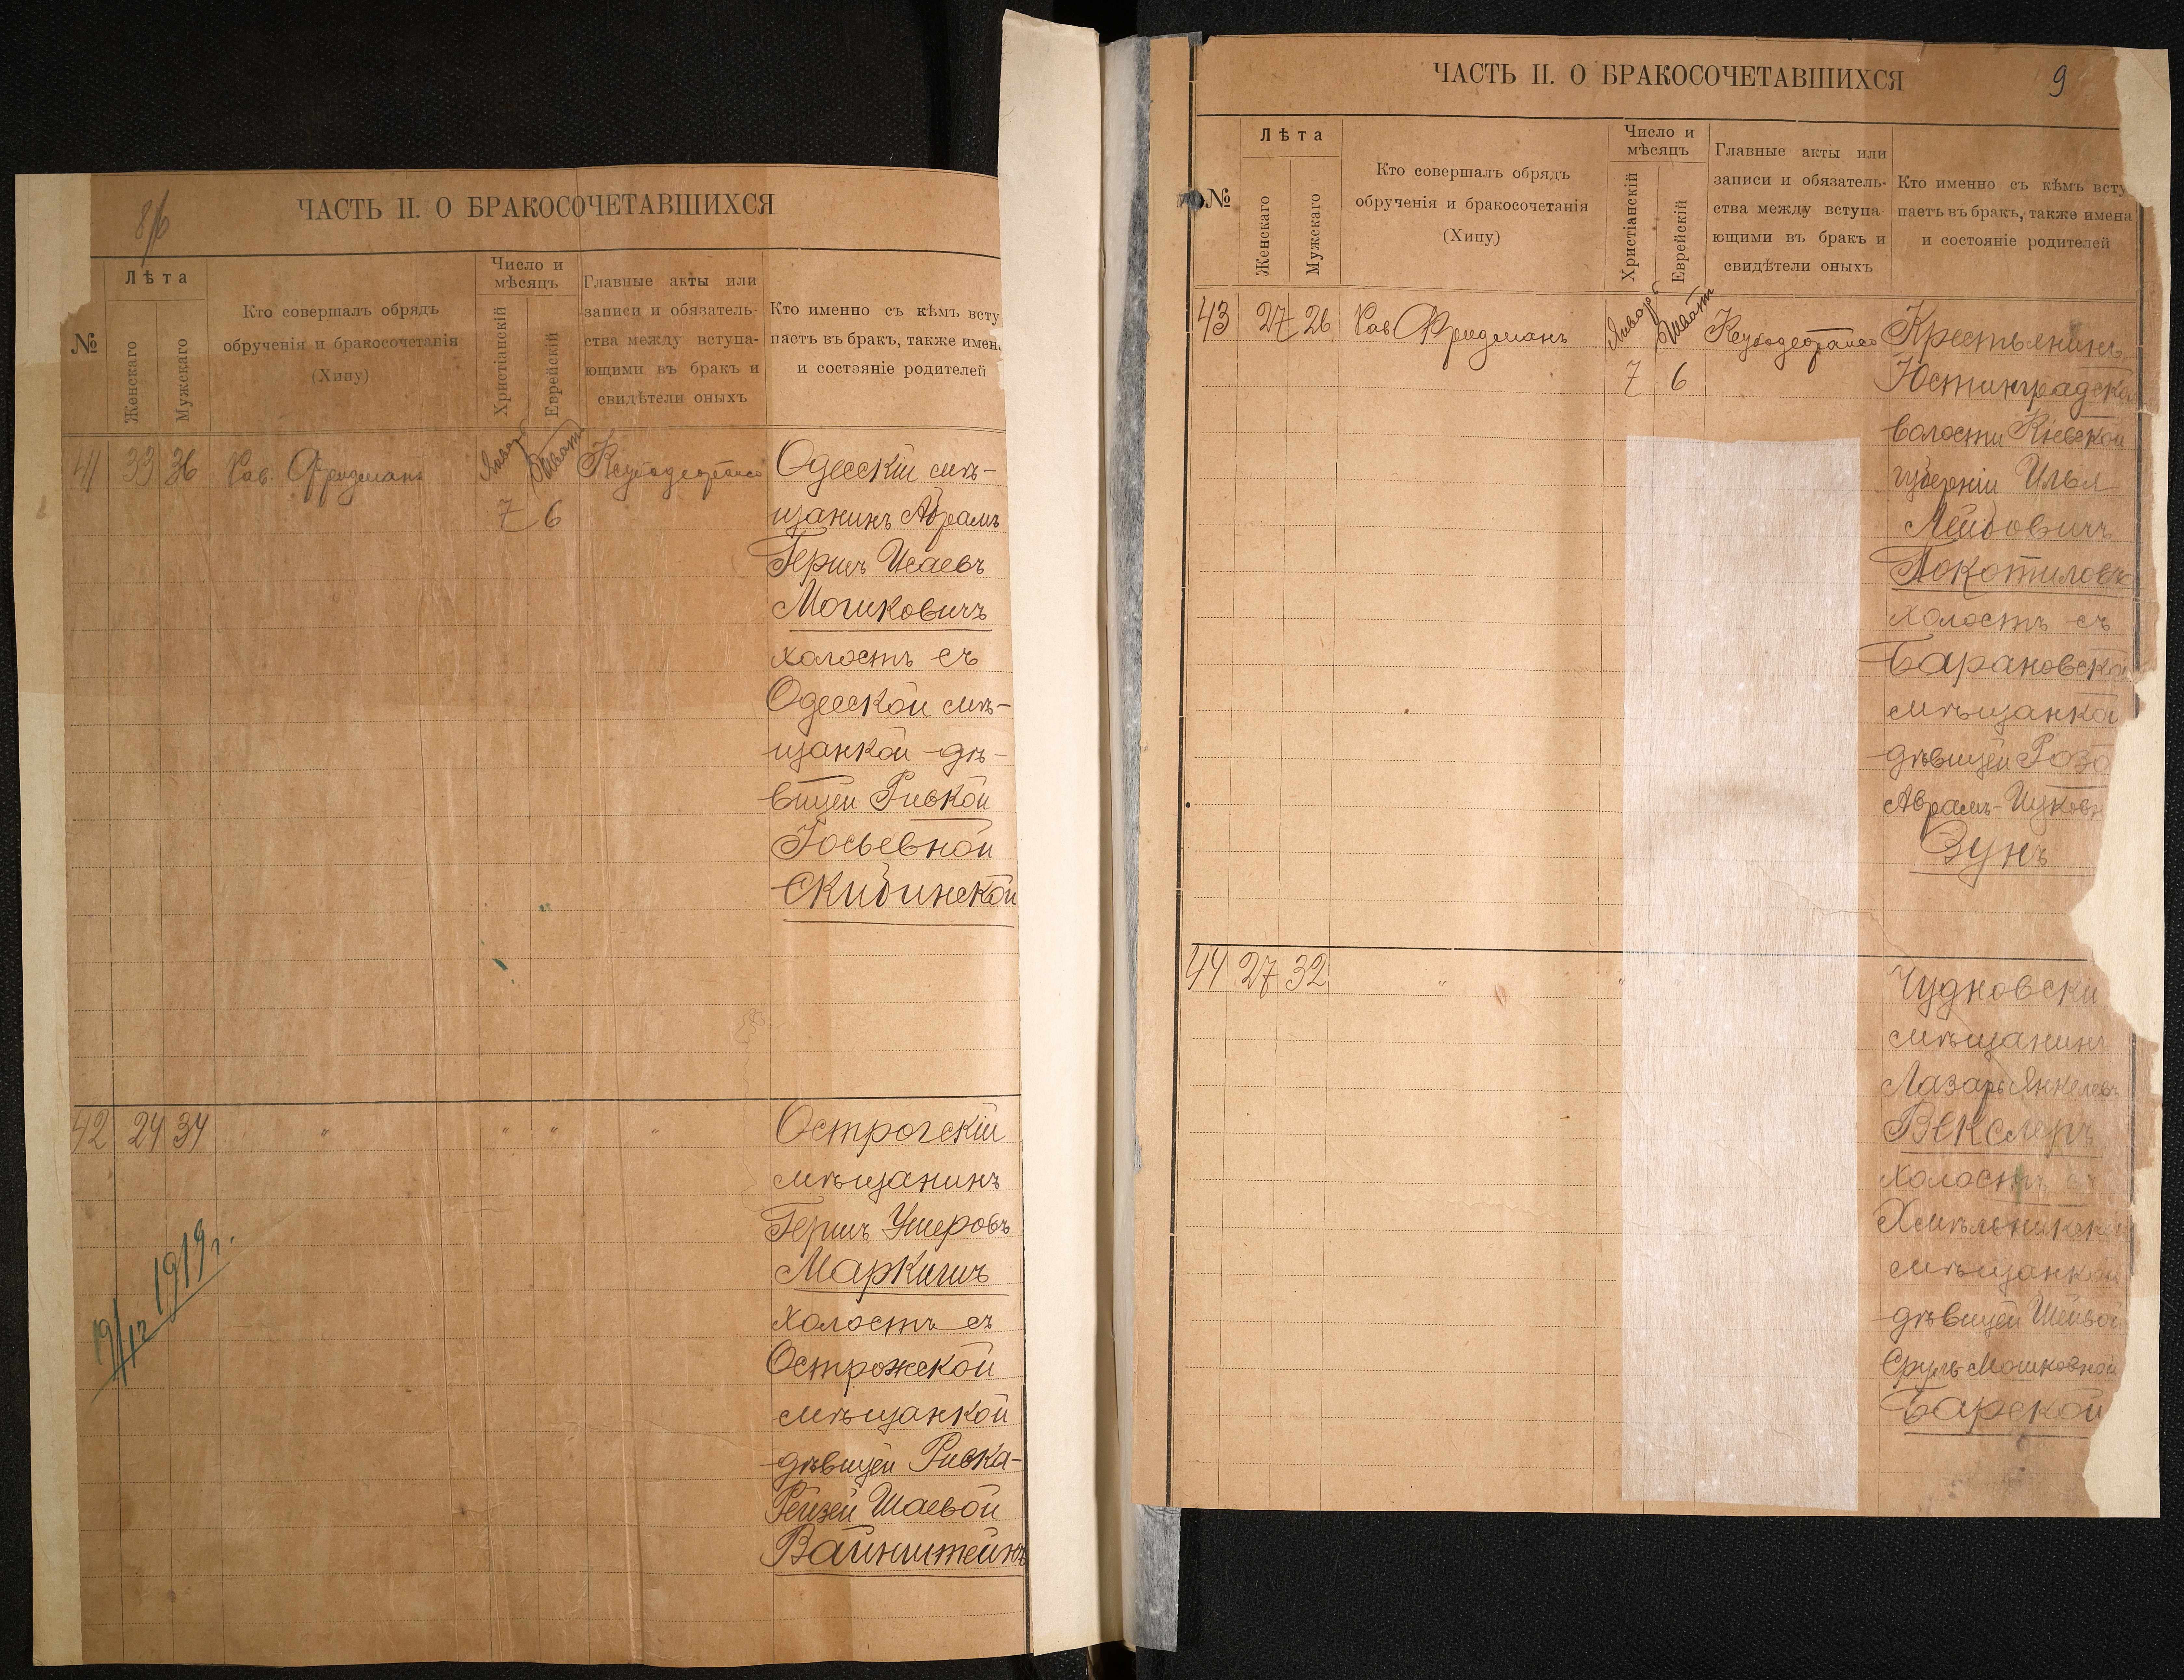 8/б
ЧАСТЬ II. О БРАКОСОЧЕТАВШИХСЯ
№
Лѣта
Женскаго
Мужскаго
Кто совершалъ обрядъ
обрученія и бракосочетанія
(Хипу)
Число и
мѣсяцъ
Христіанскій
Еврейскій
Главные акты или
записи и обязатель-
ства между вступа-
ющими въ бракъ и
свидѣтели оныхъ
Кто именно съ кѣмъ всту
паетъ въ бракъ, также имен
и состояніе родителей
41 33 36 Рав. Фридманъ
Январь Шватъ
7 6
Одесскій мѣ-
щанинъ Абрамъ
Гершъ Исаевъ
Мошковичъ
холостъ съ
Одесской мѣ-
щанкой дѣ-
вицей Ривкой
Іосьевной
Скибинской
42 24 34 " " " "
Острогскій
мѣщанинъ
Гершъ Ушеровъ
Маркишъ
холостъ съ
Острожской
мѣщанкой
дѣвицей Ривка-
Рейзей Шаевой
Вайнштейнъ
19/12 1919 г.
ЧАСТЬ II. О БРАКОСОЧЕТАВШИХСЯ
9
№
Лѣта
Женскаго
Мужскаго
Кто совершалъ обрядъ
обрученія и бракосочетанія
(Хипу)
Число и
мѣсяцъ
Христіанскій
Еврейскій
Главные акты или
записи и обязатель-
ства между вступа
ющими въ бракъ и
свидѣтели оныхъ
Кто именно съ кѣмъ всту
паетъ въ бракъ, также имена
и состояніе родителей
43 27 26 Рав Фридманъ
Январь Шватъ
7 6
Крестьянинъ
Юстинградско
волости Кіевской
губерніи Илья
Лейбовичъ
Покотиловъ
холостъ съ
Барановской
мѣщанкой
дѣвицей Розо
Абрамъ-Ицковн
Зунъ
44 27 32 " "
Чудновскі
мѣщанинъ
Лазарь Янкелевъ
Векслеръ
холостъ съ
Хмѣльникской
мѣщанкой
дѣвицей Шейвой
Сруль-Мошковной
Барской